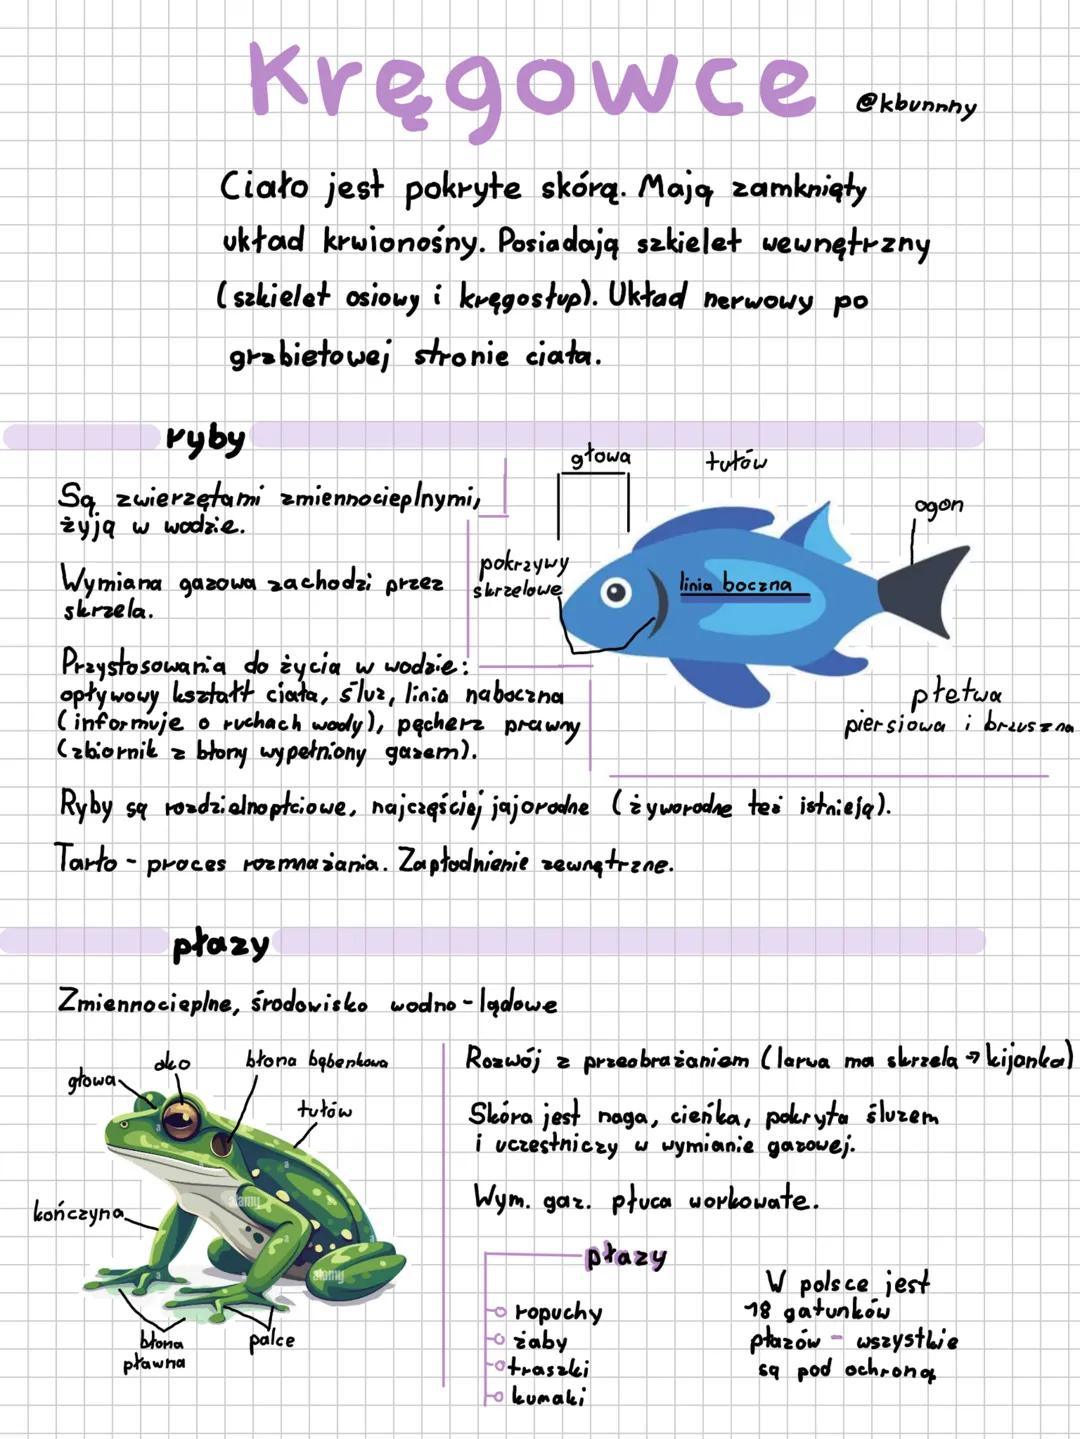 Kręgowce
@kbunnny
Ciało jest pokryte skórą. Mają zamknięty
układ krwionośny. Posiadają szkielet wewnętrzny
(szkielet osiowy i kręgosłup). Układ nerwowy po
grzbietowej stronie ciała.
ryby
Są zwierzętami zmiennocieplnymi,
żyją w wodzie.
Wymiana gazowa zachodzi przez
skrzela.
Przystosowania do życia w wodzie:
opływowy kształt ciała, śluz, linia naboczna
(informuje o ruchach wody), pęcherz prawny
(zbiornik z błony wypełniony gazem).
głowa
tułów
ogon
pokrzywy
skrzelowe
linia boczna
płetwa
piersiowa i brzuszna
Ryby są rozdzielnopłciowe, najczęściej jajorodne (żyworodne też istnieją).
Tarło - proces rozmnażania. Zapłodnienie zewnętrzne.
płazy
Zmiennocieplne, środowisko wodno-lądowe
głowa
oko
błona bębenkowa
tułów
kończyna
błona
pławna
palce
Rozwój z przeobrażaniem (larwa ma skrzela → kijanka)
Skóra jest naga, cieńka, pokryta śluzem
i uczestniczy w wymianie gazowej.
Wym. gaz. płuca workowate.
płazy
ropuchy
żaby
traszki
kumaki
W polsce jest
18 gatunków
płazów - wszystkie
są pod ochroną
alamy
alamy
a
a
a
a
a